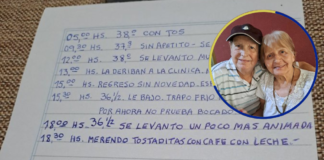 09,00 HS. 38° CON TOS
09,30 HS. 37⁵ SIN APETITO - SE
12,00 HS. 38° SE LEVANTO
13,00 HS. LA DERIBAN A LA CLINICA.
HS. REGRESO SIN NOVEDAD.
15,30 HS. 36½. LE BAJO. TRAPO FRIO
POR AHORA NO PRUEBA BOCADO
18,00 HS. 36½ SE LEVANTO UN POCO MAS ANIMADA
18,30 HS. MERENDO TOSTADITAS CON CAFE CON LECHE.-